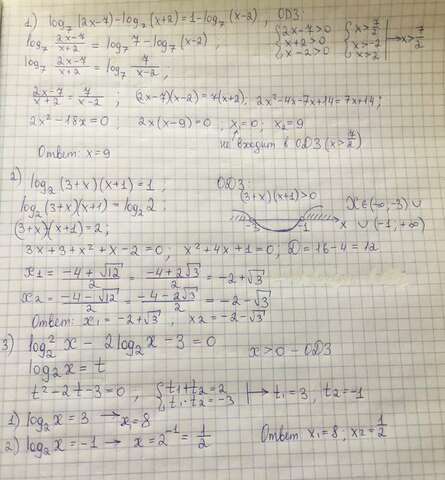 1) log₇(2x-7)-log₇(x+2)=1-log₇(x-2), ОДЗ:
log₇ (2x-7)/(x+2) = log₇ 7 - log₇(x-2), { 2x-7>0 { x>7/2
x+2>0 x>-2 → x>7/2
x-2>0 x>2
log₇ (2x-7)/(x+2) = log₇ 7/(x-2),
(2x-7)/(x+2) = 7/(x-2); (2x-7)(x-2)=7(x+2), 2x²-4x-7x+14=7x+14;
2x²-18x=0; 2x(x-9)=0, x₁=0; x₂=9
не входит в ОДЗ (x>7/2)
Ответ: x=9
2) log₂(3+x)(x+1)=1; ОДЗ:
log₂(3+x)(x+1)=log₂2; (3+x)(x+1)>0
(3+x)(x+1)=2; -3 -1 x X∈(-∞,-3)∪∪(-1,+∞)
3x+3+x²+x-2=0; x²+4x+1=0, D=16-4=12
x₁ = (-4+√12)/2 = (-4+2√3)/2 = -2+√3
x₂ = (-4-√12)/2 = (-4-2√3)/2 = -2-√3
Ответ: x₁=-2+√3, x₂=-2-√3
3) log₂²x - 2log₂x - 3 = 0 x>0 - ОДЗ
log₂x = t
t²-2t-3=0, { t₁+t₂=2 t₁·t₂=-3 → t₁=3, t₂=-1
1) log₂x=3 → x₁=8
2) log₂x=-1 → x=2⁻¹=1/2 Ответ x₁=8; x₂=1/2